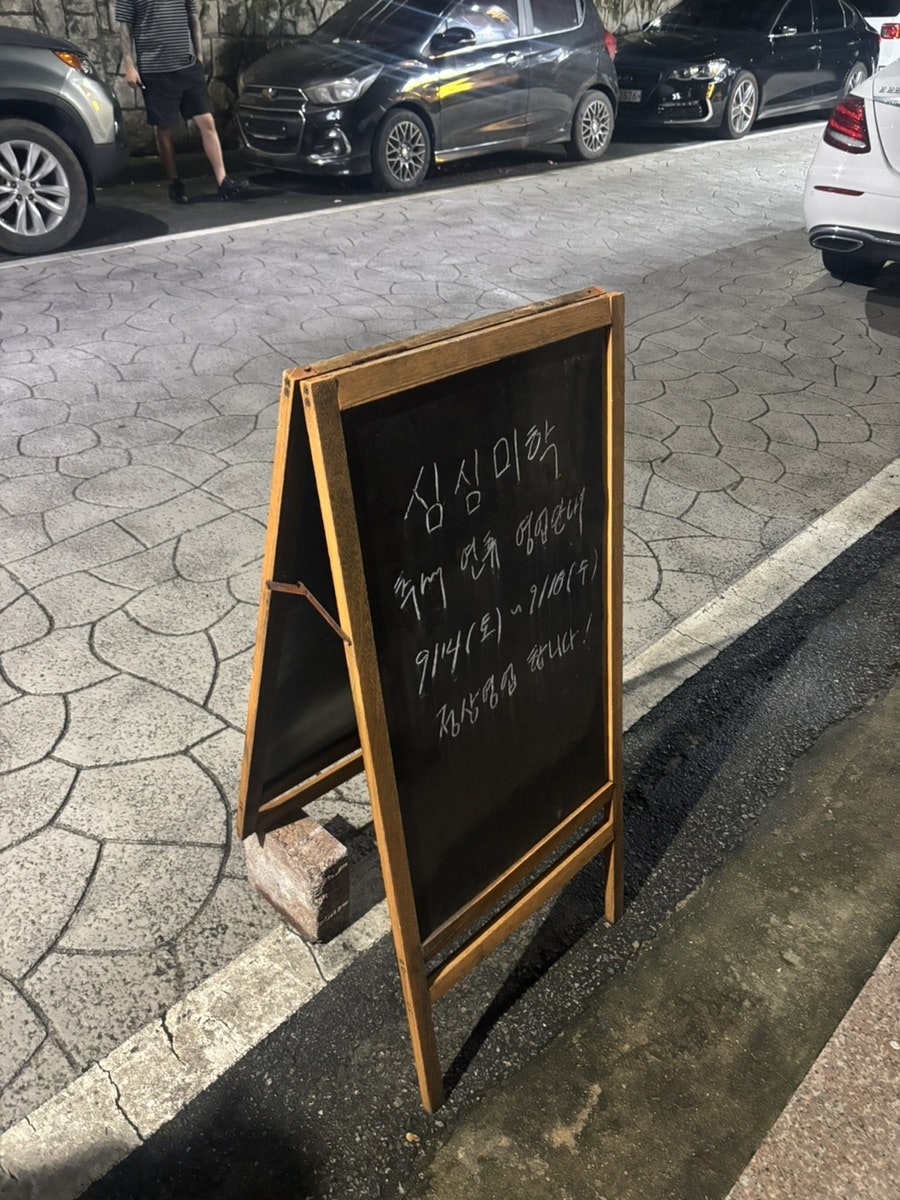 심심미학
추석 연휴 영업안내
9/14(토) ~ 9/18(수)
정상영업 합니다!